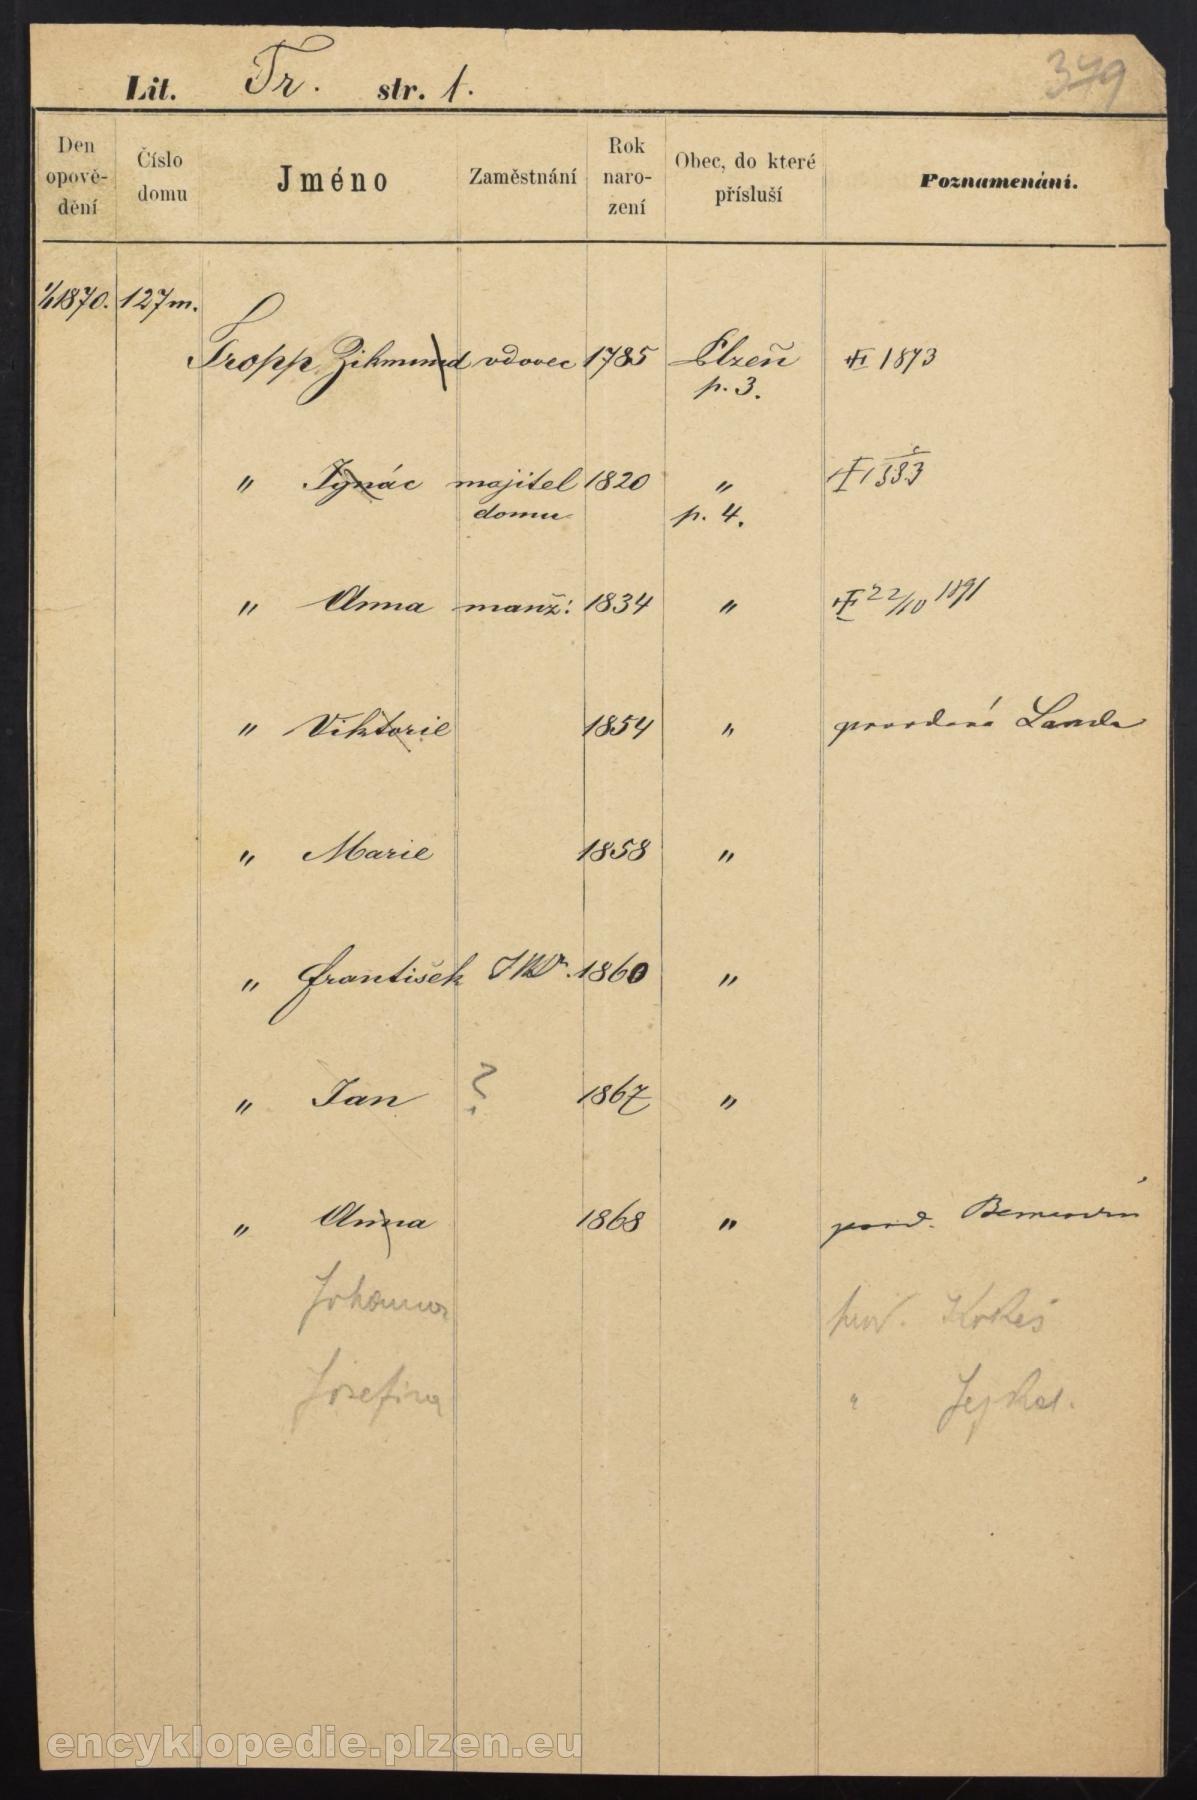 Lit. Tr. str. 1.
379
Den opově-dění Číslo domu Jméno Zaměstnání Rok naro-zení Obec, do které přísluší Poznamenání.
1/1 1870. 127 m.
Tropp Zikmund vdovec 1785 Plzeň 1873
p. 3.
" Ignác majitel 1820 " 1883
domu p. 4.
" Anna manž: 1834 " 22/10 1891
" Viktorie 1854 " provdaná Landa
" Marie 1858 "
" František JUDr. 1860 "
" Jan ? 1867 "
" Anna 1868 " prov.
Johanna prov. Kokeš
Josefina " Jejkal.
encyklopedie.plzen.eu